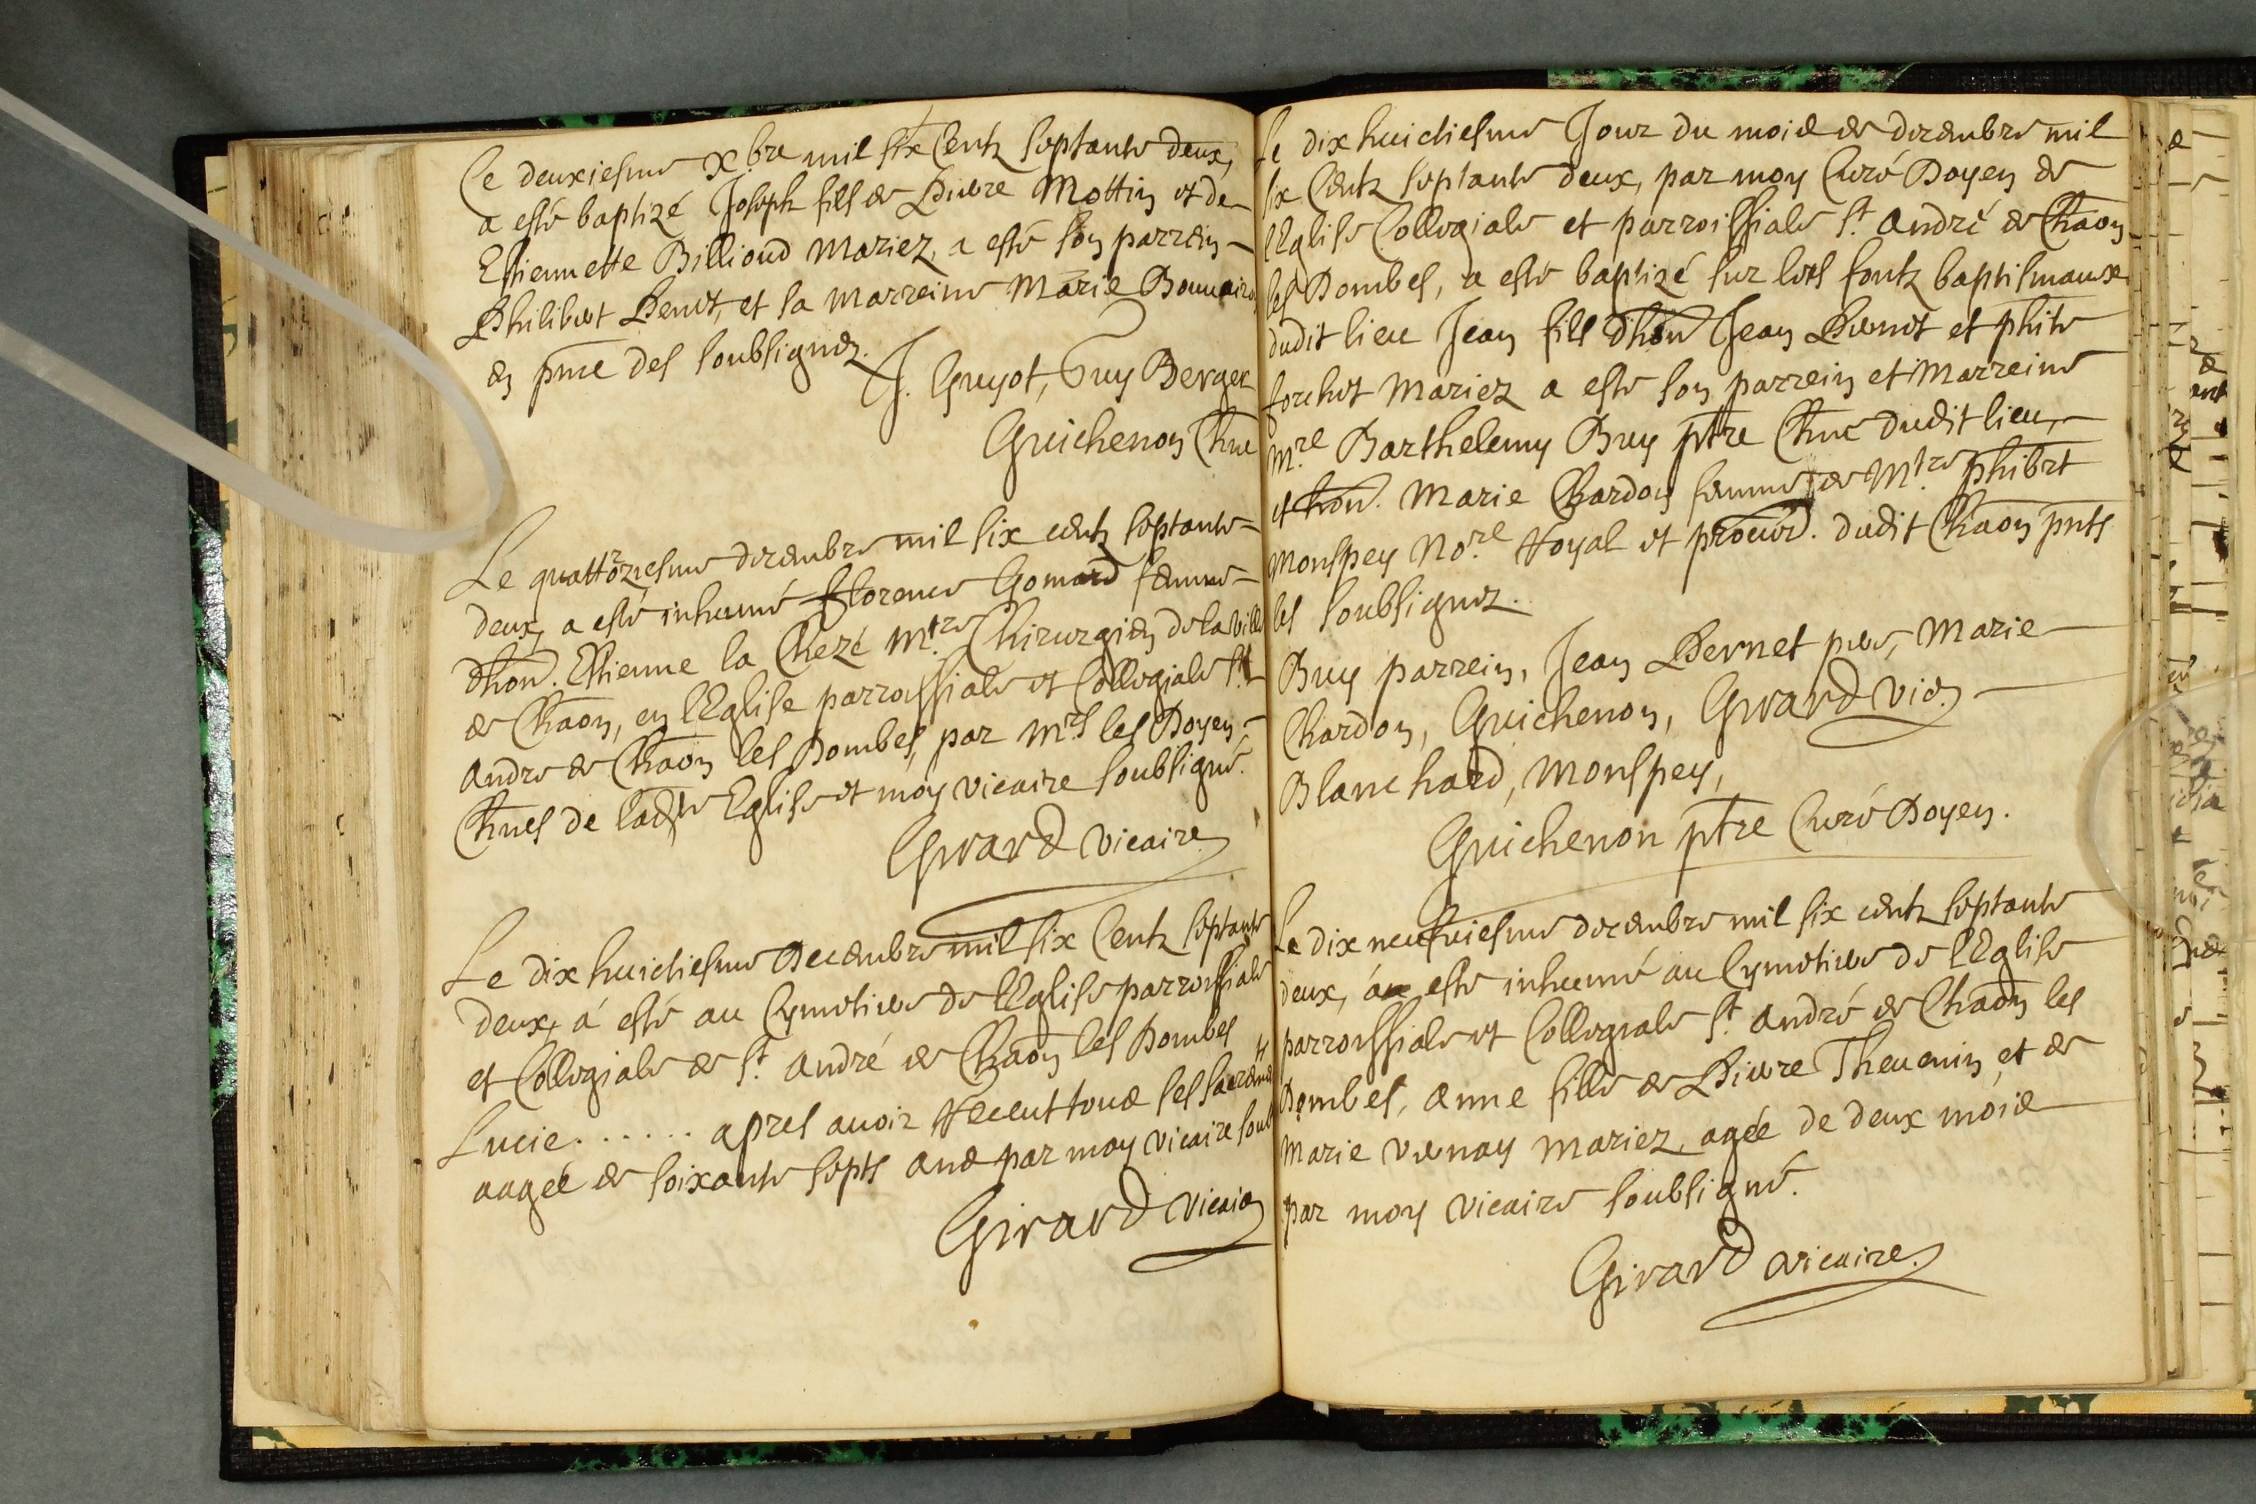 Ce deuxiesme Xbre mil six Centz septante deux,
a esté baptizé Joseph fils de Pierre Mottin et de
Estiennette Billioud Mariez, a esté son parrein
Philibert Pernet, et sa Marreine Marie
en pnce des soubsignez.
J. Guyot, Guy Berger
Guichenon Chne
Le quattorziesme decembre mil six centz septante
deux, a esté inhumé Florence Gomard femme
dhon. Estienne la Chezé Mtre Chirurgien de la ville
de Chaon, en lEglise parroissiale et Collegiale St
Andre de Chaon les Dombes, par Mrs les Doyen
Chnes de ladte Eglise et moy vicaire soubsigné.
Girard vicaire
Le dix huictiesme Decembre mil six Centz septante
deux, á esté au Cymetiere de lEglise parroissiale
et Collegiale de St. André de Chaon les Dombes
Lucie...... apres avoir Receut tous ses sacremts
aagée de soixante septs ans par moy vicaire soub
Girard vicaire
Le dix huictiesme Jour du mois de decembre mil
six Centz septante deux, par moy Curé Doyen de
lEglise Collegiale et parroissiale St. André de Chaon
les Dombes, a esté baptizé sur les fontz baptismaux
dudit lieu Jean fils dhon Jean Pernet et phite
forchet Mariez a esté son parrein et Marreine
Mre Barthelemy Buy ptre Chne dudit lieu,
et hon. Marie Chardon femme de Mtre phibrt
Monspey Nore Royal et procur. dudit Chaon pnts
les soubsignez.
Buy parrein, Jean Pernet pere, Marie
Chardon, Guichenon, Girard vic.
Blanchard, Monspey,
Guichenon ptre Curé Doyen.
Le dix neufviesme decembre mil six centz septante
deux, á esté inhumé au Cymetiere de lEglise
parroissiale et Collegiale St. André de Chaon les
Dombes, Anne fille de Pierre Thevenin et de
Marie Vernay Mariez, agée de deux mois
par moy vicaire soubsigné.
Girard vicaire.